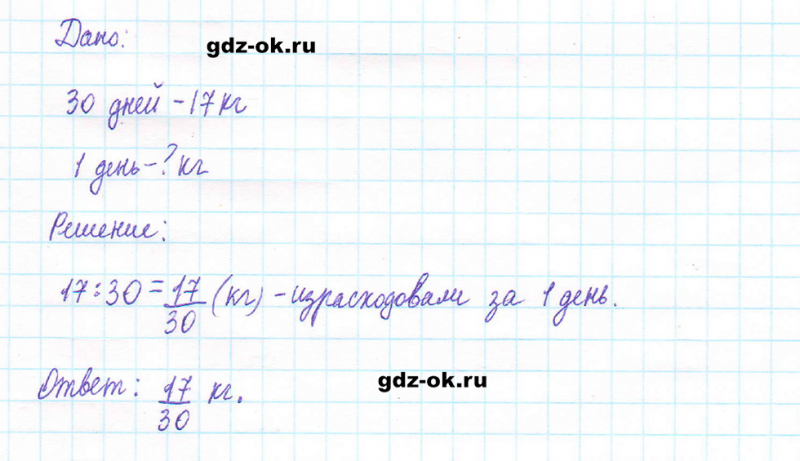 Дано:
gdz-ok.ru
30 дней - 17 кг
1 день - ? кг
Решение:
17:30 = 17/30 (кг) - израсходовали за 1 день.
Ответ: 17/30 кг.
gdz-ok.ru